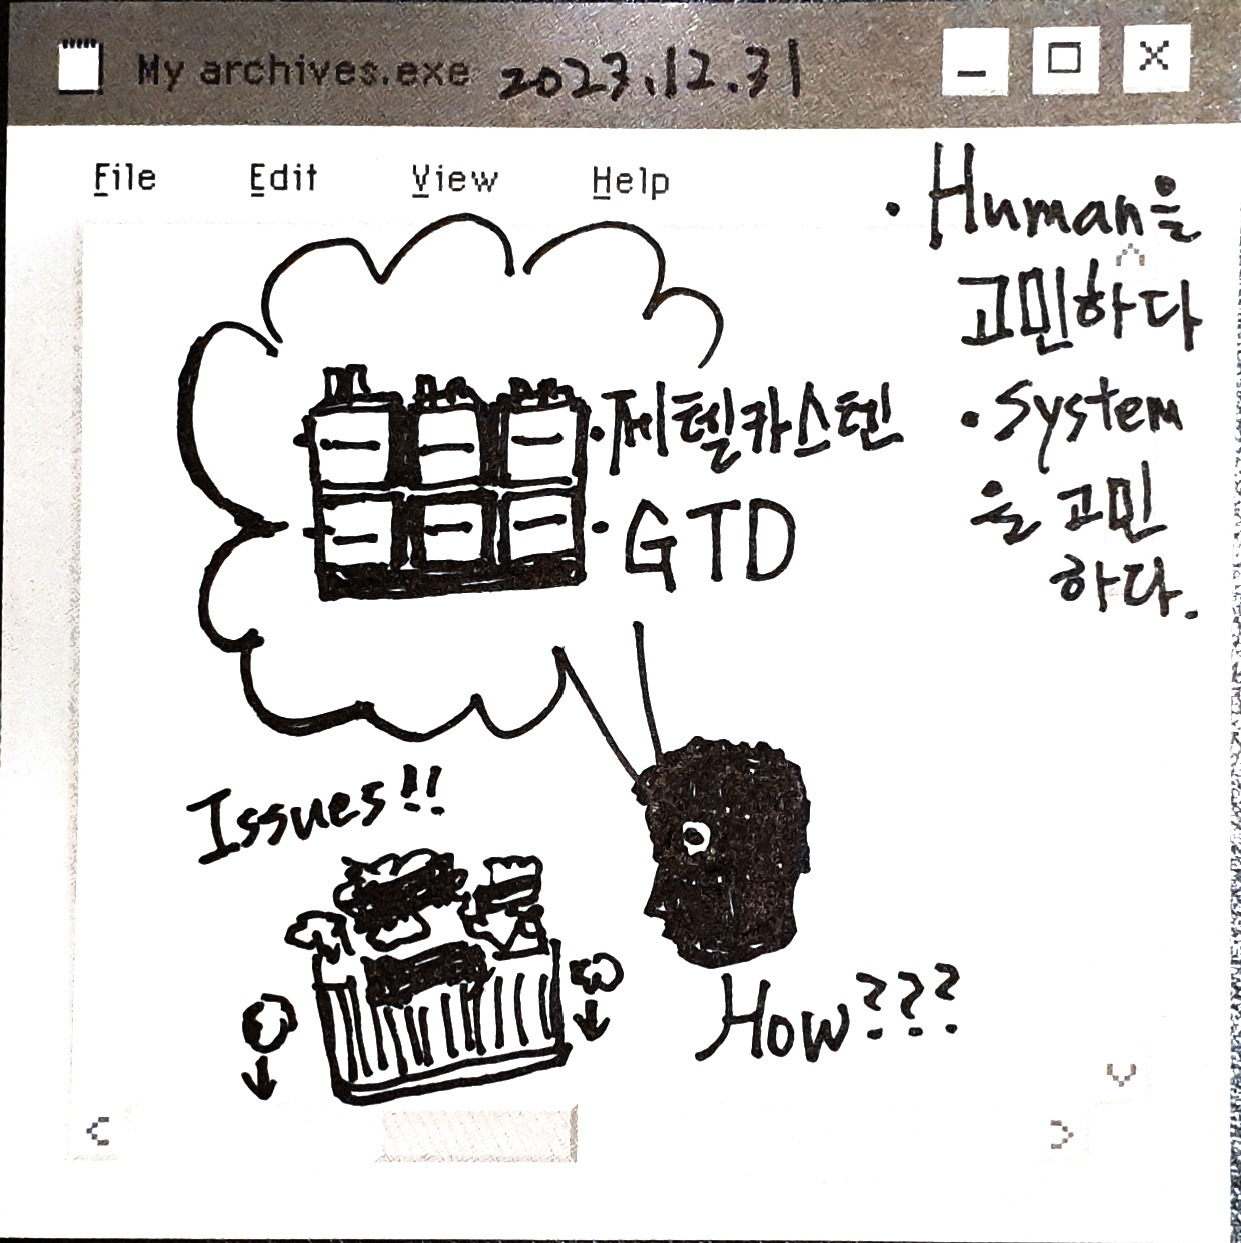 My archives.exe 2023.12.31
File Edit View Help
• Human을
고민하다
• System
을 고민
하다.
• 제텔카스텐
• GTD
Issues!!
How???